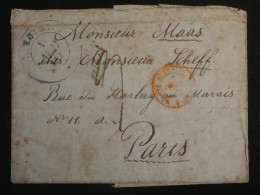 Monsieur Maas
chez Monsieur Scheff
Rue du Harlay au Marais
No 11. a.
Paris